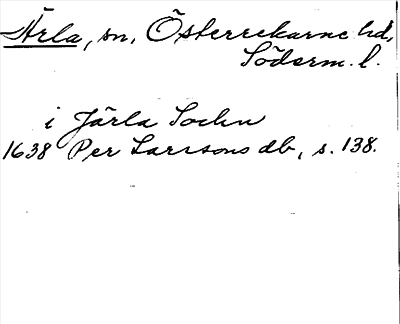 Ärla, sn, Österrekarne hd,
Söderm. l.
i Järla Sochn
1638 Per Larssons db, s. 138.